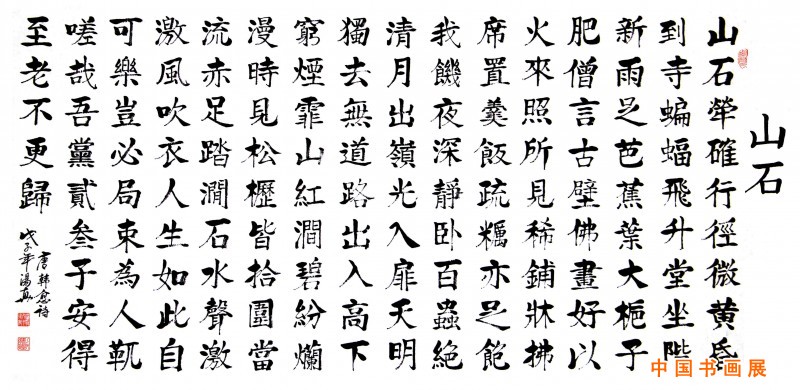 山石
山石犖確行徑微黃昏
到寺蝙蝠飛升堂坐階
新雨足芭蕉葉大梔子
肥僧言古壁佛畫好以
火來照所見稀鋪牀拂
席置羹飯疏糲亦足飽
我饑夜深靜臥百蟲絕
清月出嶺光入扉天明
獨去無道路出入高下
窮煙霏山紅澗碧紛爛
漫時見松櫪皆拾圍當
流赤足踏澗石水聲激
激風吹衣人生如此自
可樂豈必局束為人靰
嗟哉吾黨貳叁子安得
至老不更歸
唐韓愈詩
戊子年湯
中国书画展